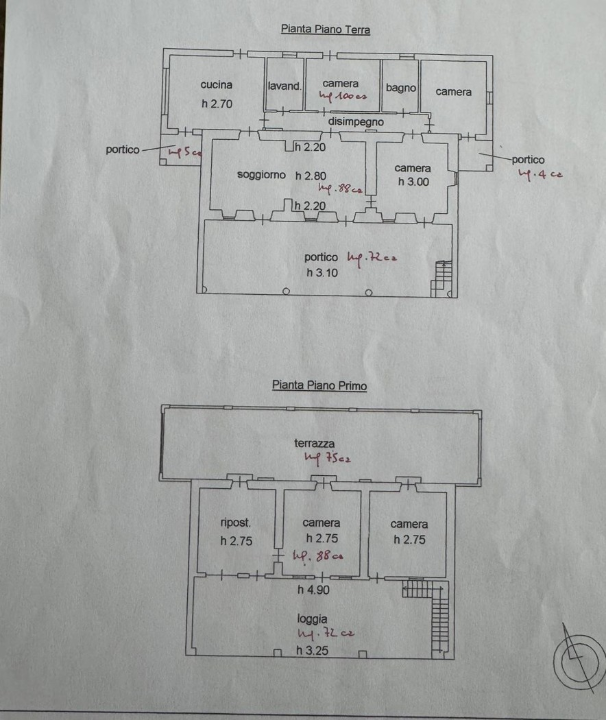 Pianta Piano Terra
cucina
h 2.70
lavand.
camera
mq 100 ca
bagno
camera
disimpegno
portico
mq 5 ca
h 2.20
soggiorno h 2.80
mq. 88 ca
h 2.20
camera
h 3.00
portico
mq. 4 ca
portico mq. 72 ca
h 3.10
Pianta Piano Primo
terrazza
mq 75 ca
ripost.
h 2.75
camera
h 2.75
mq. 88 ca
camera
h 2.75
h 4.90
loggia
mq. 72 ca
h 3.25